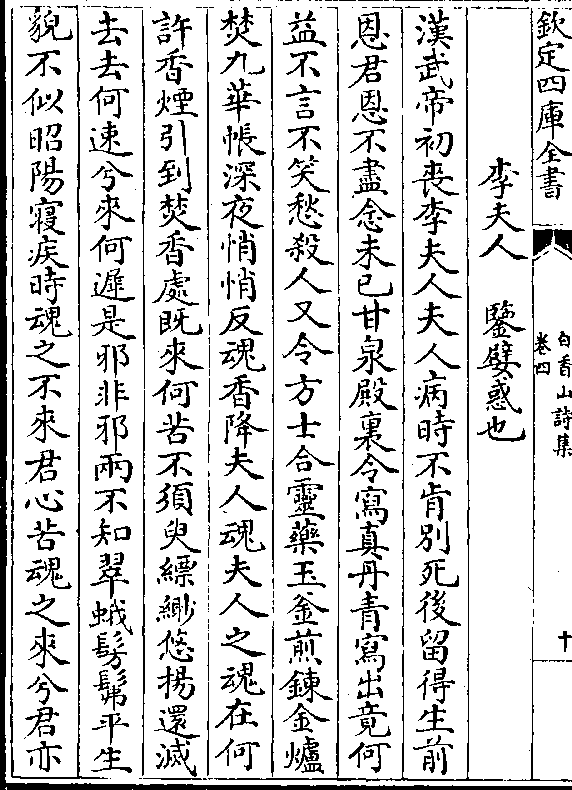 欽定四庫全書
白香山詩集
卷四
十
李夫人 鑒嬖惑也
漢武帝初喪李夫人夫人病時不肯別死後留得生前
恩君恩不盡念未已甘泉殿裏令寫真丹青寫出竟何
益不言不笑愁殺人又令方士合靈藥玉釜煎鍊金爐
焚九華帳深夜悄悄反魂香降夫人魂夫人之魂在何
許香煙引到焚香處既來何苦不須臾縹緲悠揚還滅
去去何速兮來何遲是邪非邪兩不知翠蛾髣髴平生
貌不似昭陽寢疾時魂之不來君心苦魂之來兮君亦